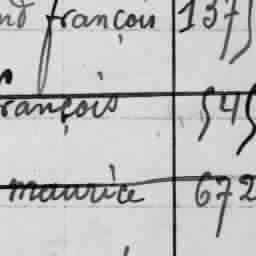 nd françois 137
rançois 545
maurice 672